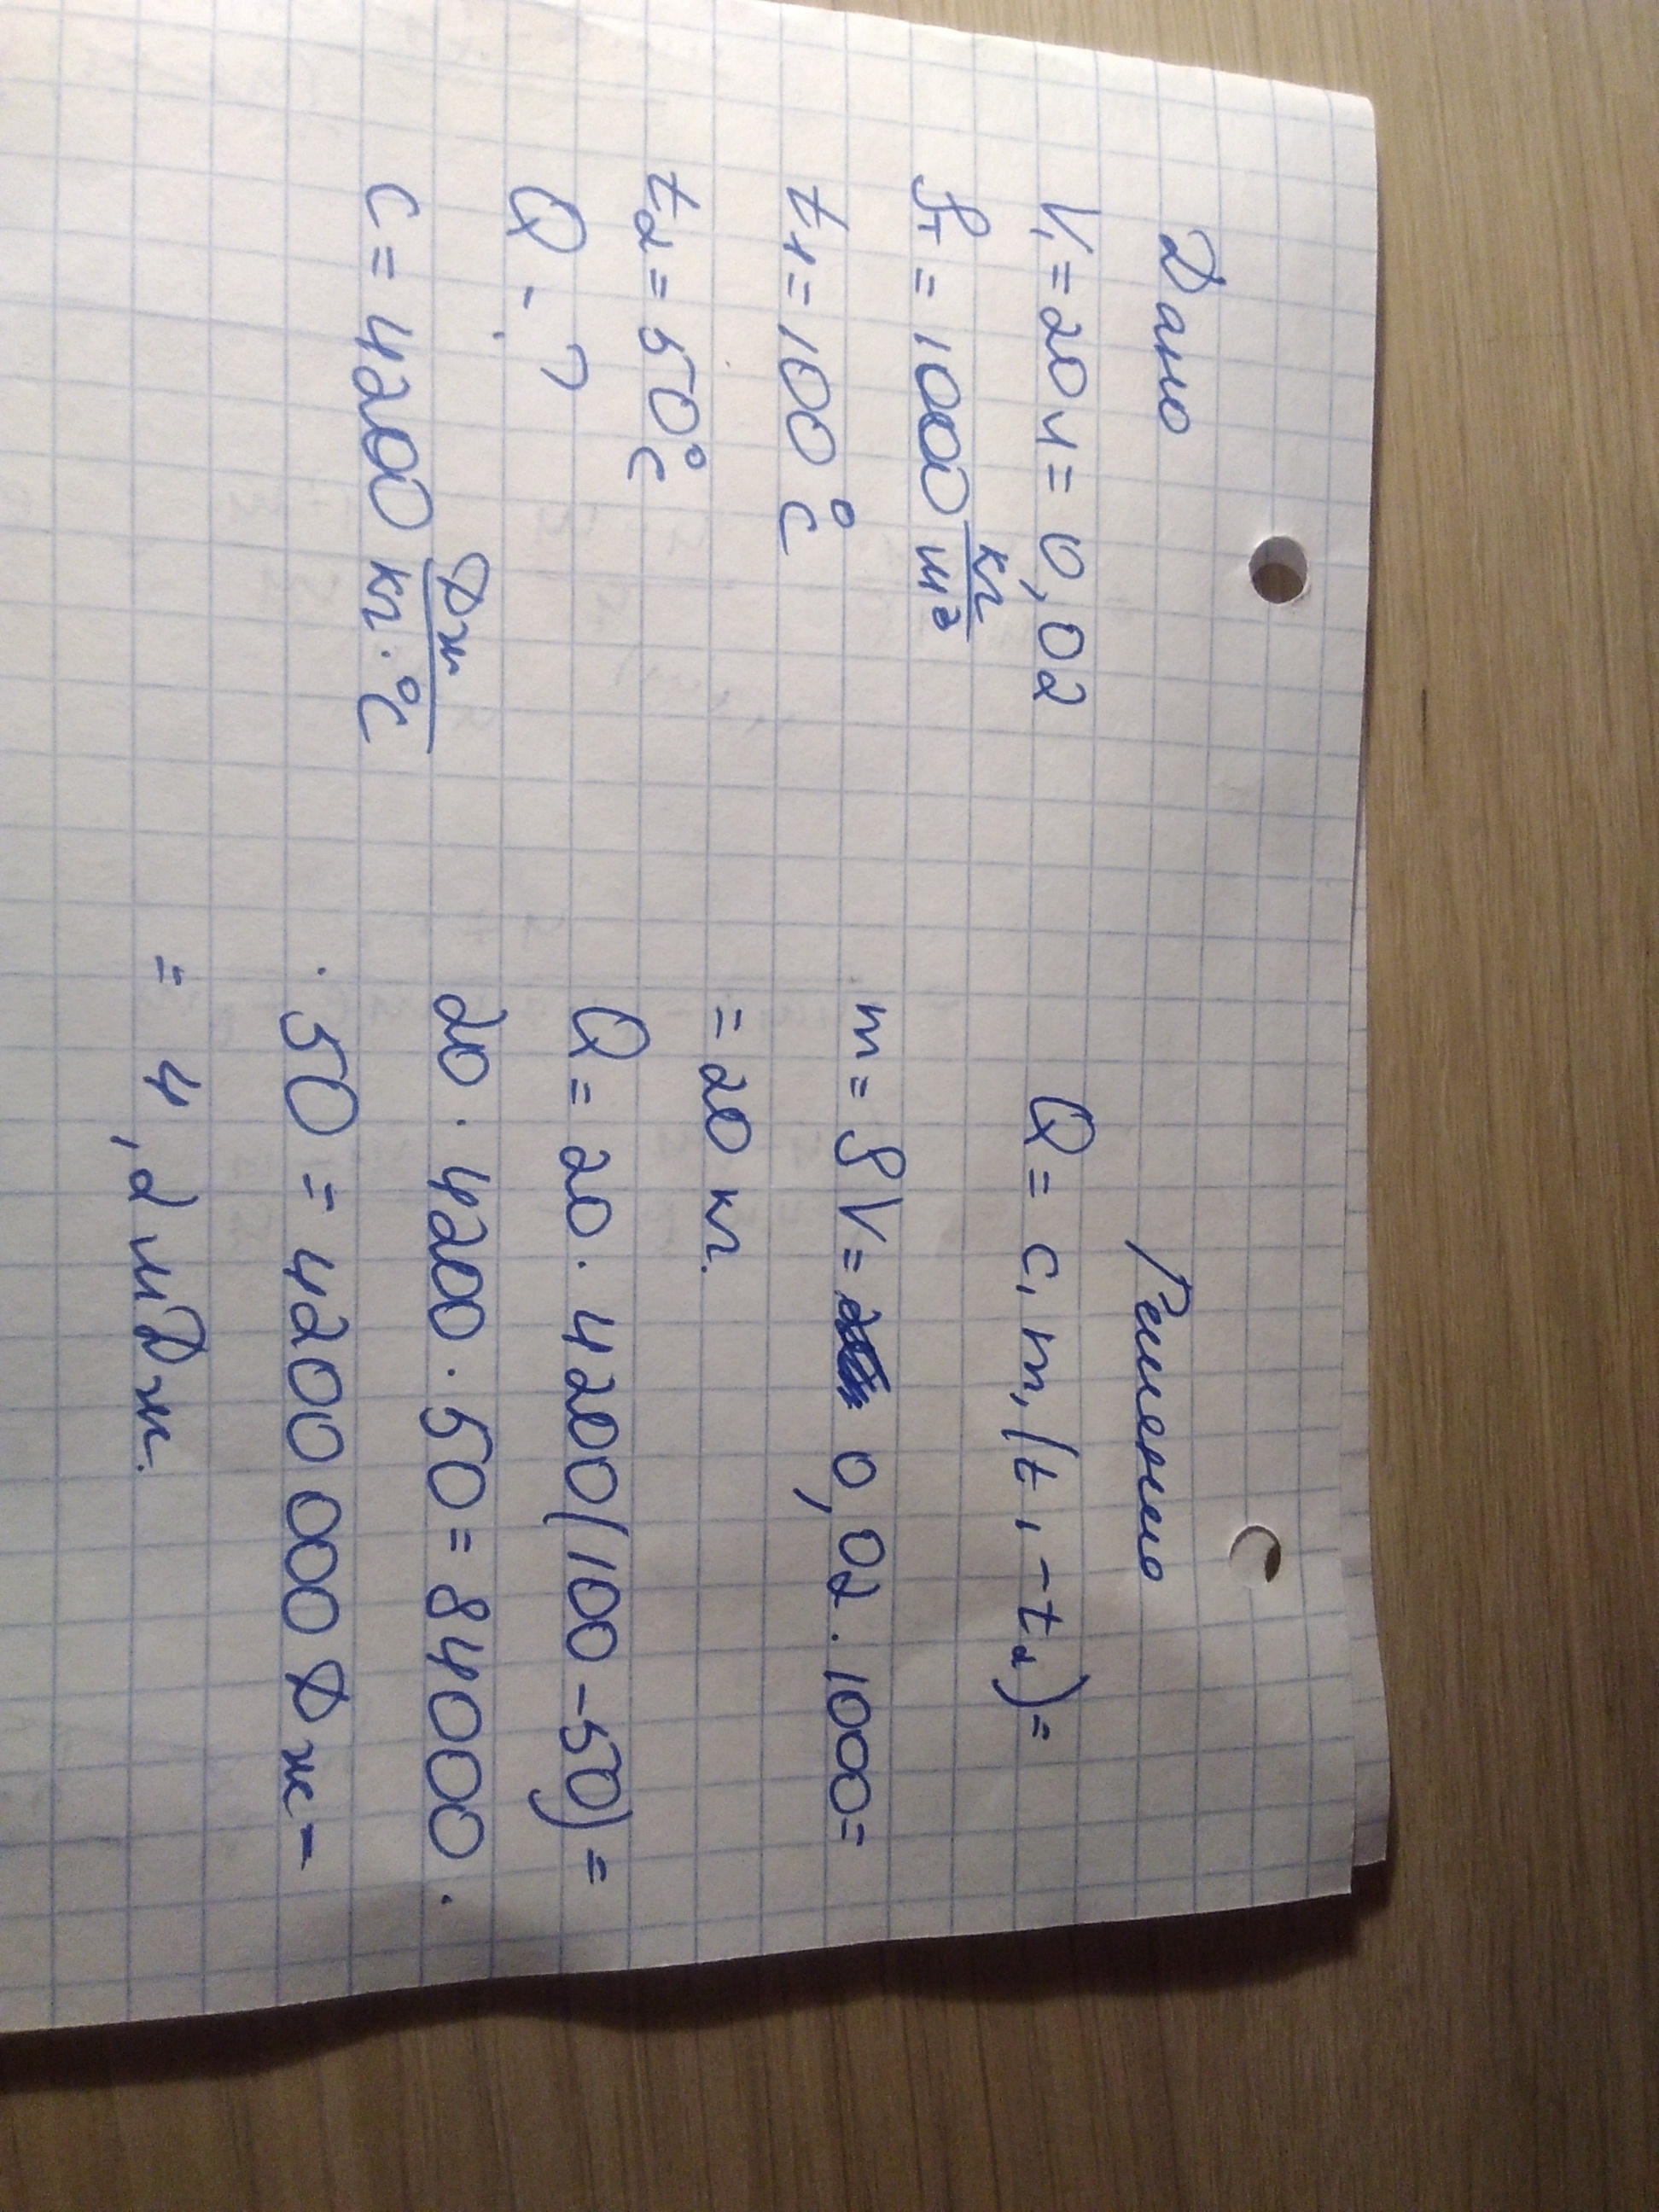 Дано
V₁ = 20 л = 0,02
ρ₁ = 1000 кг/м³
t₁ = 100 °C
t₂ = 50 °C
Q - ?
c = 4200 Дж/кг·°C
Решение
Q = c₁ m₁ (t₁ - t₂) =
m = ρV = 0,02 · 1000 =
= 20 кг.
Q = 20 · 4200 (100 - 50) =
20 · 4200 · 50 = 84000 ·
· 50 = 4200 000 Дж =
= 4,2 мДж.